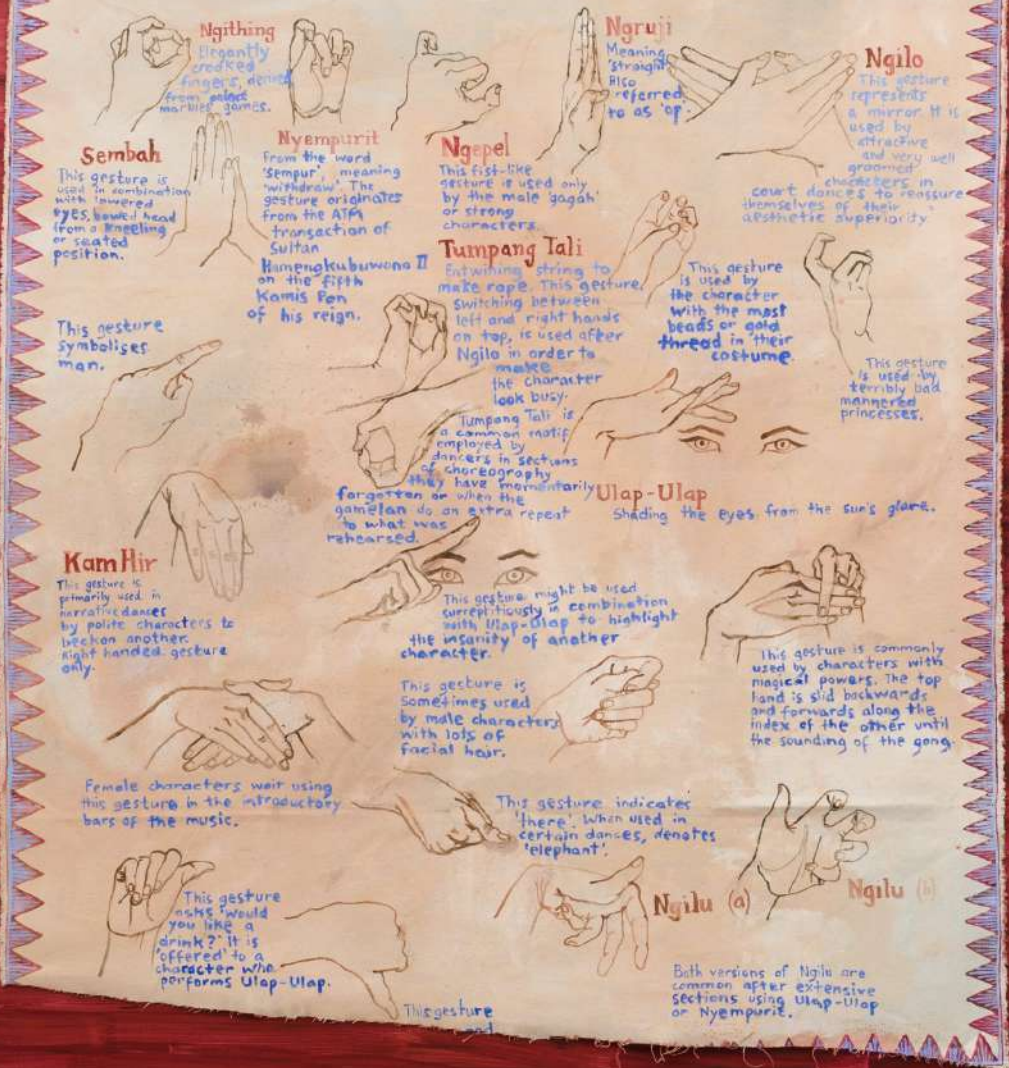 Ngithing
Elegantly
crooked
fingers, derived
from palace
marbles games.
Ngruji
Meaning
'straight'
Also
referred
to as 'op'.
Ngilo
This gesture
represents
a mirror. It is
used by
attractive
and very well
groomed
characters in
court dances to reassure
themselves of their
aesthetic superiority
Sembah
This gesture is
used in combination
with lowered
eyes, bowed head
from a kneeling
or seated
position.
Nyempurit
From the word
'sempur', meaning
'withdraw'. The
gesture originates
from the ATM
transaction of
Sultan
Hamengkubuwono II
on the fifth
Kamis Pon
of his reign.
Ngepel
This fist-like
gesture is used only
by the male 'gagah'
or strong
characters.
Tumpang Tali
Entwining string to
make rope. This gesture,
switching between
left and right hands
on top, is used after
Ngilo in order to
make
the character
look busy.
Tumpang Tali is
a common motif
employed by
dancers in sections
of choreography
they have momentarily
forgotten or when the
gamelan do an extra repeat
to what was
rehearsed.
This gesture
is used by
the character
with the most
beads or gold
thread in their
costume.
This gesture
is used by
terribly bad
mannered
princesses.
This gesture
symbolises
man.
Ulap-Ulap
Shading the eyes from the sun's glare.
Kam Hir
This gesture is
primarily used in
narrative dances
by polite characters to
beckon another.
Right handed gesture
only.
This gesture might be used
surreptitiously in combination
with Ulap-Ulap to highlight
the insanity of another
character.
This gesture is commonly
used by characters with
magical powers. The top
hand is slid backwards
and forwards along the
index of the other until
the sounding of the gong.
This gesture is
sometimes used
by male characters
with lots of
facial hair.
Female characters wait using
this gesture in the introductory
bars of the music.
This gesture indicates
'there'. When used in
certain dances, denotes
'elephant'.
This gesture
asks 'would
you like a
drink?' It is
'offered' to a
character who
performs Ulap-Ulap.
Ngilu (a)
Ngilu (b)
Both versions of Ngilu are
common after extensive
sections using Ulap-Ulap
or Nyempurit.
This gesture